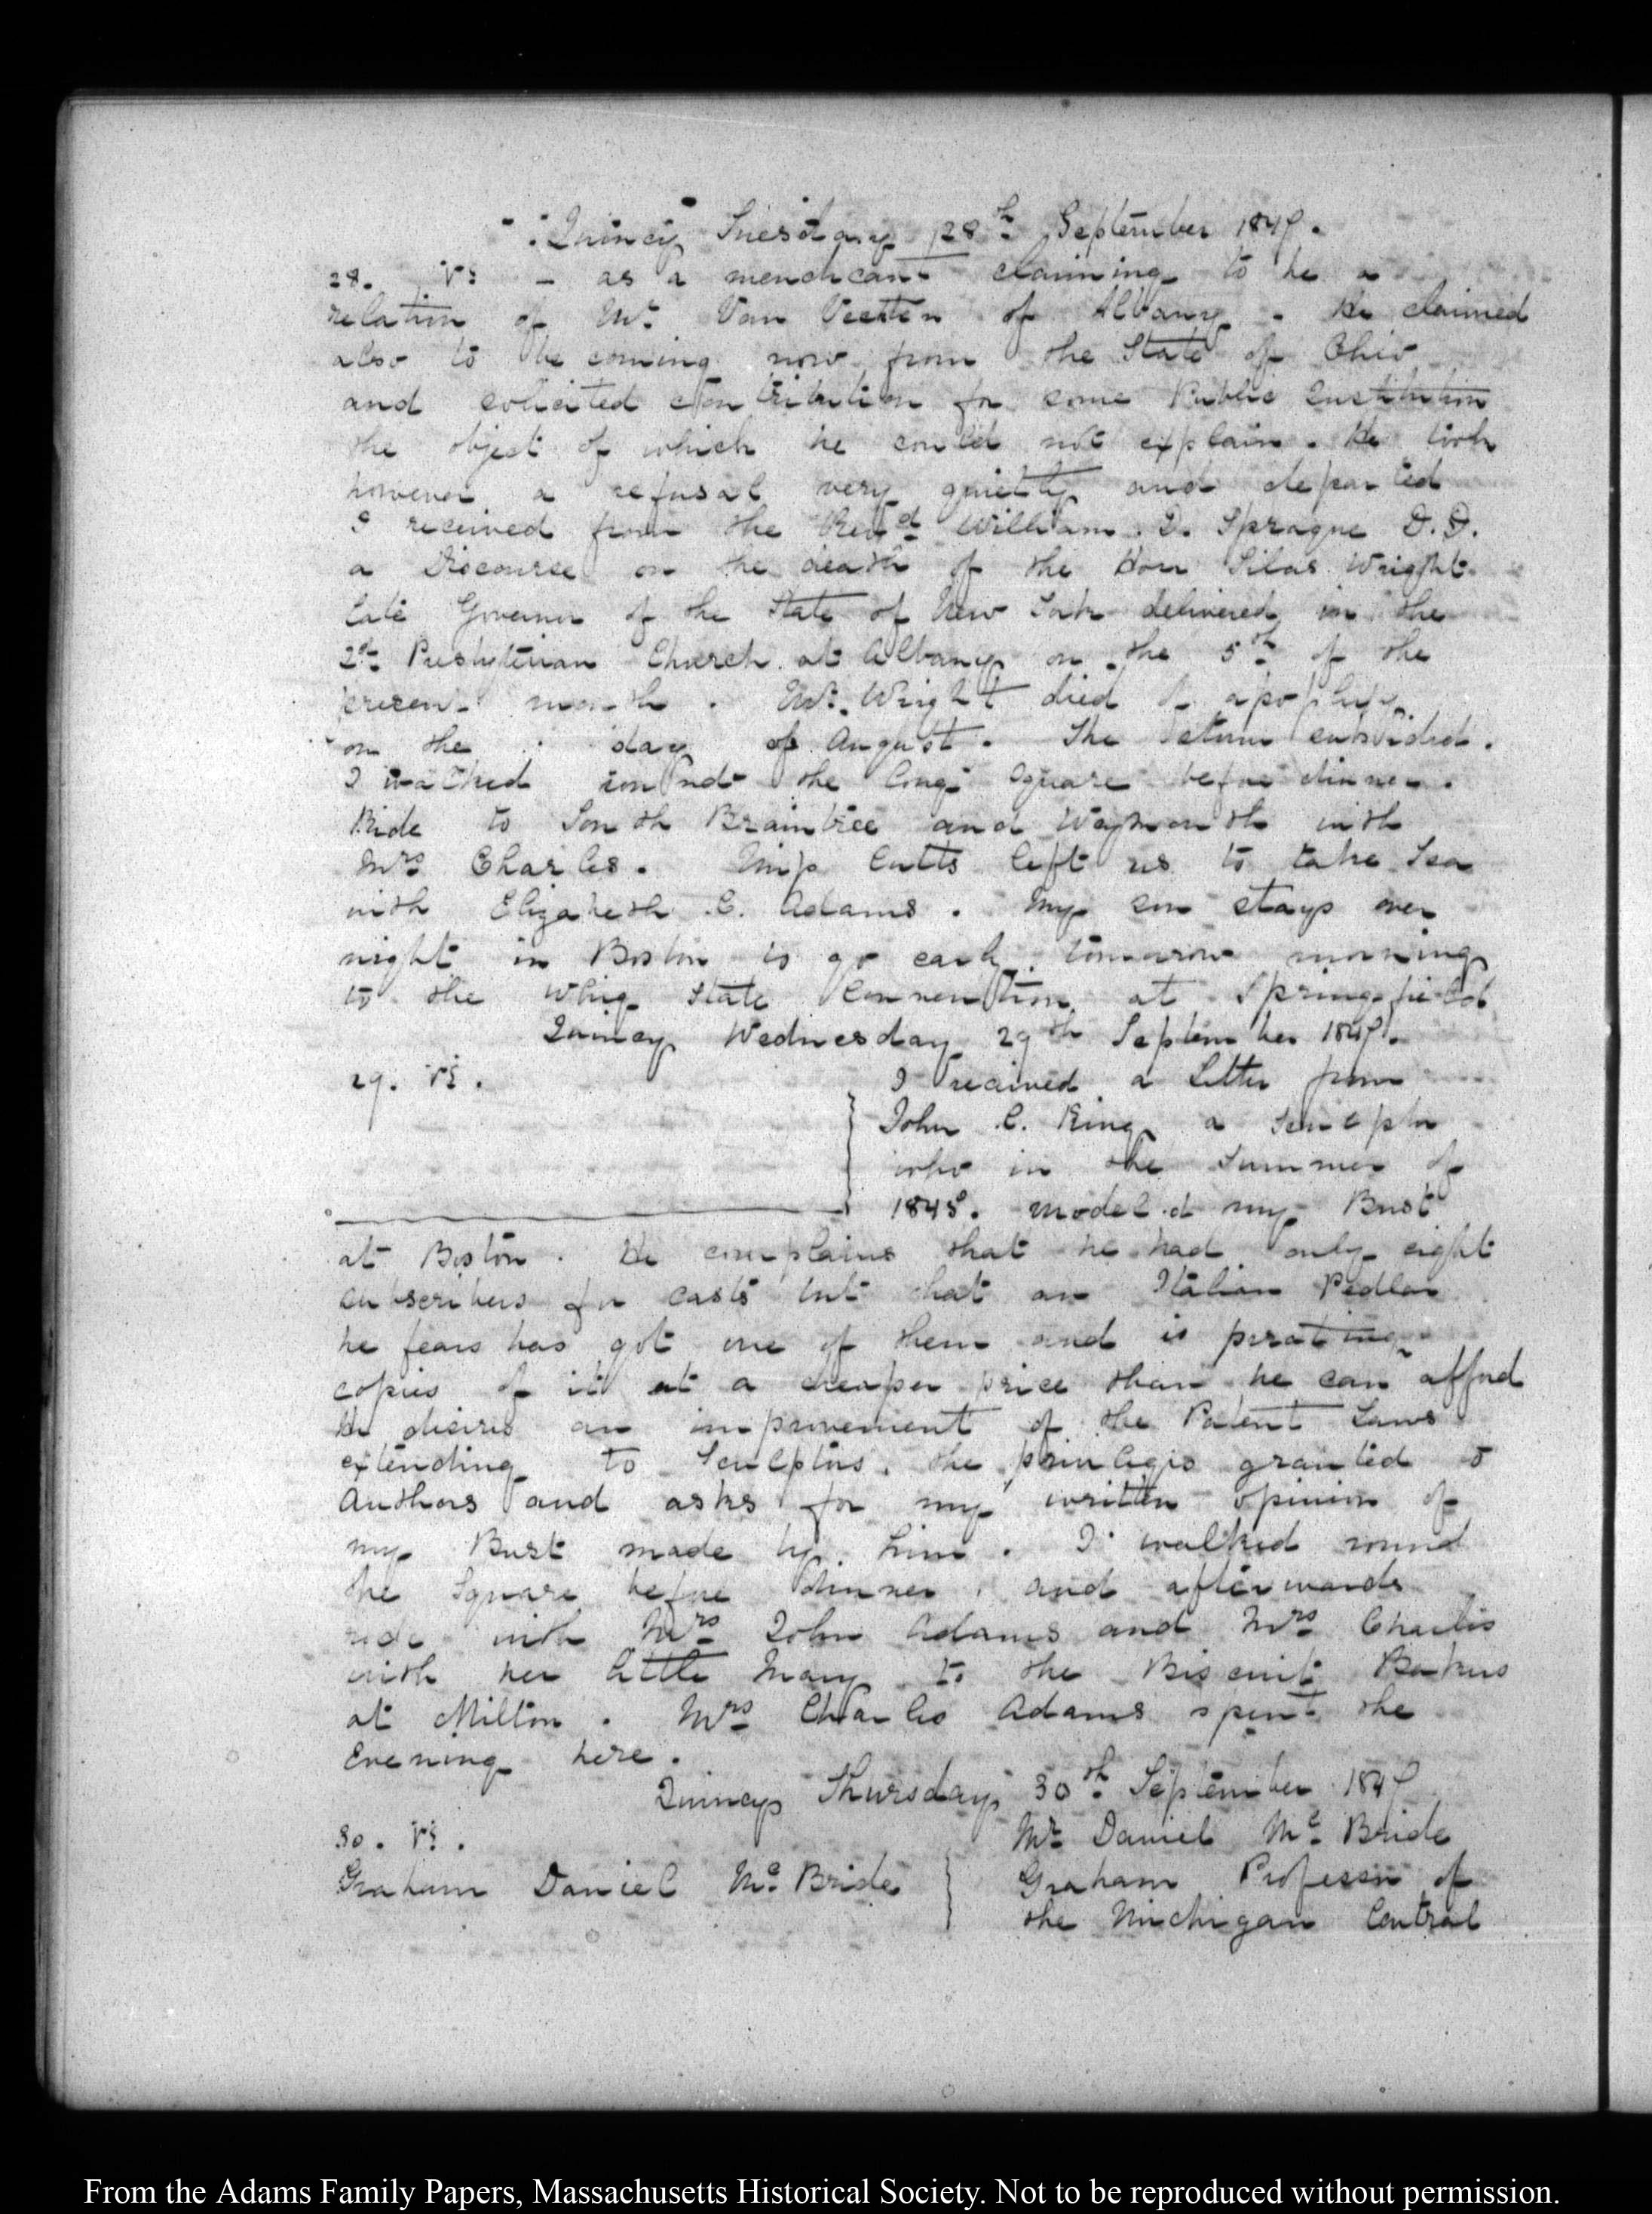 Quincy Tuesday 28th September 1847.
28. VI. – as a mendicant claiming to be a
relation of Mr. Van Vechten of Albany. He claimed
also to be coming now from the State of Ohio
and solicited contribution for some Public Institution
the object of which he could not explain. He took
however a refusal very quietly and departed
I received from the Revd. William Sprague D.D.
a Discourse on the death of the Hon Silas Wright
late Governor of the State of New York delivered in the
2d. Presbyterian Church at Albany on the 5th of the
present month. Mr. Wright died of apoplexy
on the day of August. The storm subsided.
I walked round the long square before dinner.
Ride to South Braintree and Weymouth with
Mrs Charles. Miss Cutts left us to take Tea
with Elizabeth C. Adams. My son stays over
night in Boston to go early tomorrow morning
to the Whig State Convention at Springfield
Quincy Wednesday 29th September 1847.
29. VI. I received a Letter from
John C. King a Sculptor
who in the Summer of
1845. modeled my Bust
at Boston. He complains that he had only eight
subscribers for casts but that an Italian Pedlar
he fears has got one of them and is pirating
copies of it at a cheaper price than he can afford
He desires an improvement of the Patent Laws
extending to Sculptors, the privilegis granted to
Authors and asks for my written opinion of
my Bust made by him. I walked round
the Square before dinner, and afterwards
ride with Mrs John Adams and Mrs Charles
with her little Mary to the Biscuit Bakers
at Milton. Mrs Charles Adams spent the
Evening here.
Quincy Thursday 30th September 1847
30. VI. Mr Daniel Mc Bride
Graham Daniel Mc Bride Graham Professor of
the Michigan Central
From the Adams Family Papers, Massachusetts Historical Society. Not to be reproduced without permission.